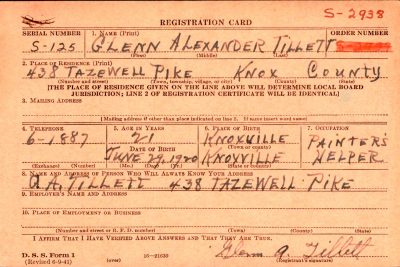 S-2938
REGISTRATION CARD
SERIAL NUMBER 1. NAME (Print) ORDER NUMBER
S-125 GLENN ALEXANDER TILLETT
(First) (Middle) (Last)
2. PLACE OF RESIDENCE (Print)
438 TAZEWELL PIKE KNOX COUNTY
(Number and street) (Town, township, village, or city) (County) (State)
[THE PLACE OF RESIDENCE GIVEN ON THE LINE ABOVE WILL DETERMINE LOCAL BOARD
JURISDICTION; LINE 2 OF REGISTRATION CERTIFICATE WILL BE IDENTICAL]
3. MAILING ADDRESS
[Mailing address if other than place indicated on line 2. If same insert word same]
4. TELEPHONE 5. AGE IN YEARS 6. PLACE OF BIRTH 7. OCCUPATION
6-1887 21 KNOXVILLE PAINTER'S
DATE OF BIRTH (Town or county)
JUNE 29, 1920 KNOXVILLE HELPER
(Exchange) (Number) (Mo.) (Day) (Yr.) (State or country)
8. NAME AND ADDRESS OF PERSON WHO WILL ALWAYS KNOW YOUR ADDRESS
A.A. TILLETT 438 TAZEWELL PIKE
9. EMPLOYER'S NAME AND ADDRESS
10. PLACE OF EMPLOYMENT OR BUSINESS
(Number and street or R. F. D. number) (Town) (County) (State)
I AFFIRM THAT I HAVE VERIFIED ABOVE ANSWERS AND THAT THEY ARE TRUE.
D. S. S. Form 1 16—21630 Glenn A. Tillett
(Revised 6-9-41) (Registrant's signature)